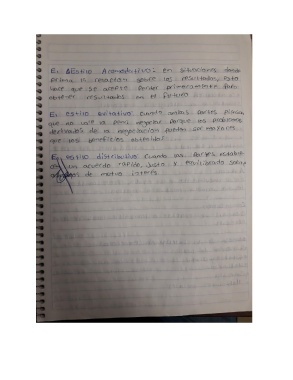 El Estilo Acomodativo: En situaciones donde
prima la relación sobre los resultados, esto
hace que se acepte perder primeramente para
obtener resultados en el futuro
El estilo evitativo cuando ambas partes piensan
que no vale la pena negociar porque los problemas
derivados de la negociación pueden ser mayores
que los beneficios obtenidos.
El estilo distributivo cuando las partes establecen
un acuerdo rápido, justo y provisional sobre
de mutuo interés